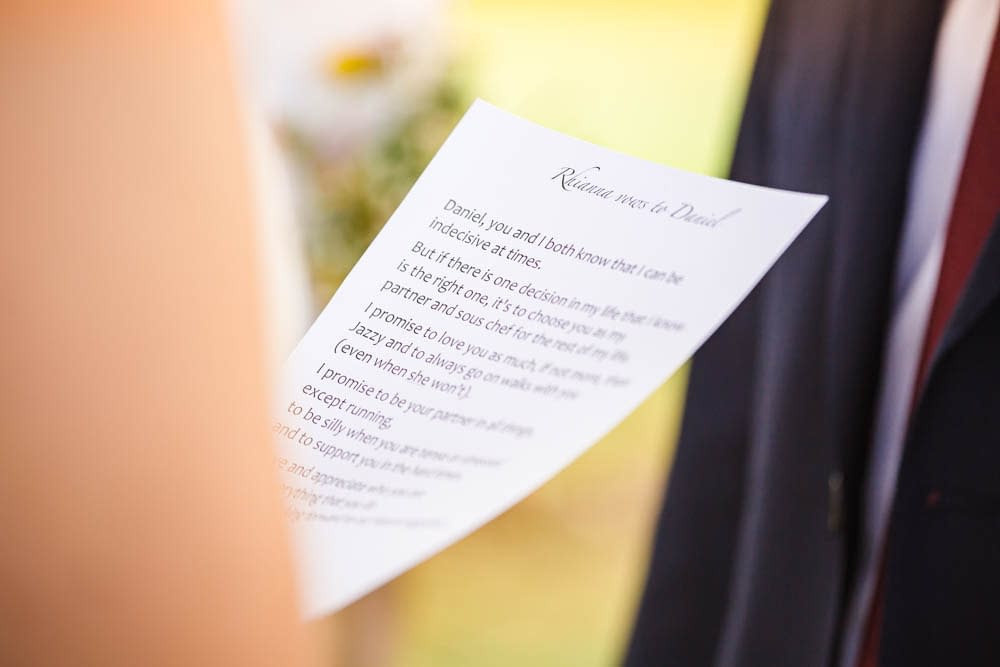 Rhianna vows to Daniel
Daniel, you and I both know that I can be
indecisive at times.
But if there is one decision in my life that I know
is the right one, it's to choose you as my
partner and sous chef for the rest of my life.
I promise to love you as much, if not more, than
Jazzy and to always go on walks with you
(even when she won't).
I promise to be your partner in all things
except running,
to be silly when you are tense or stressed
and to support you in the hard times
and appreciate who you are
thing that you